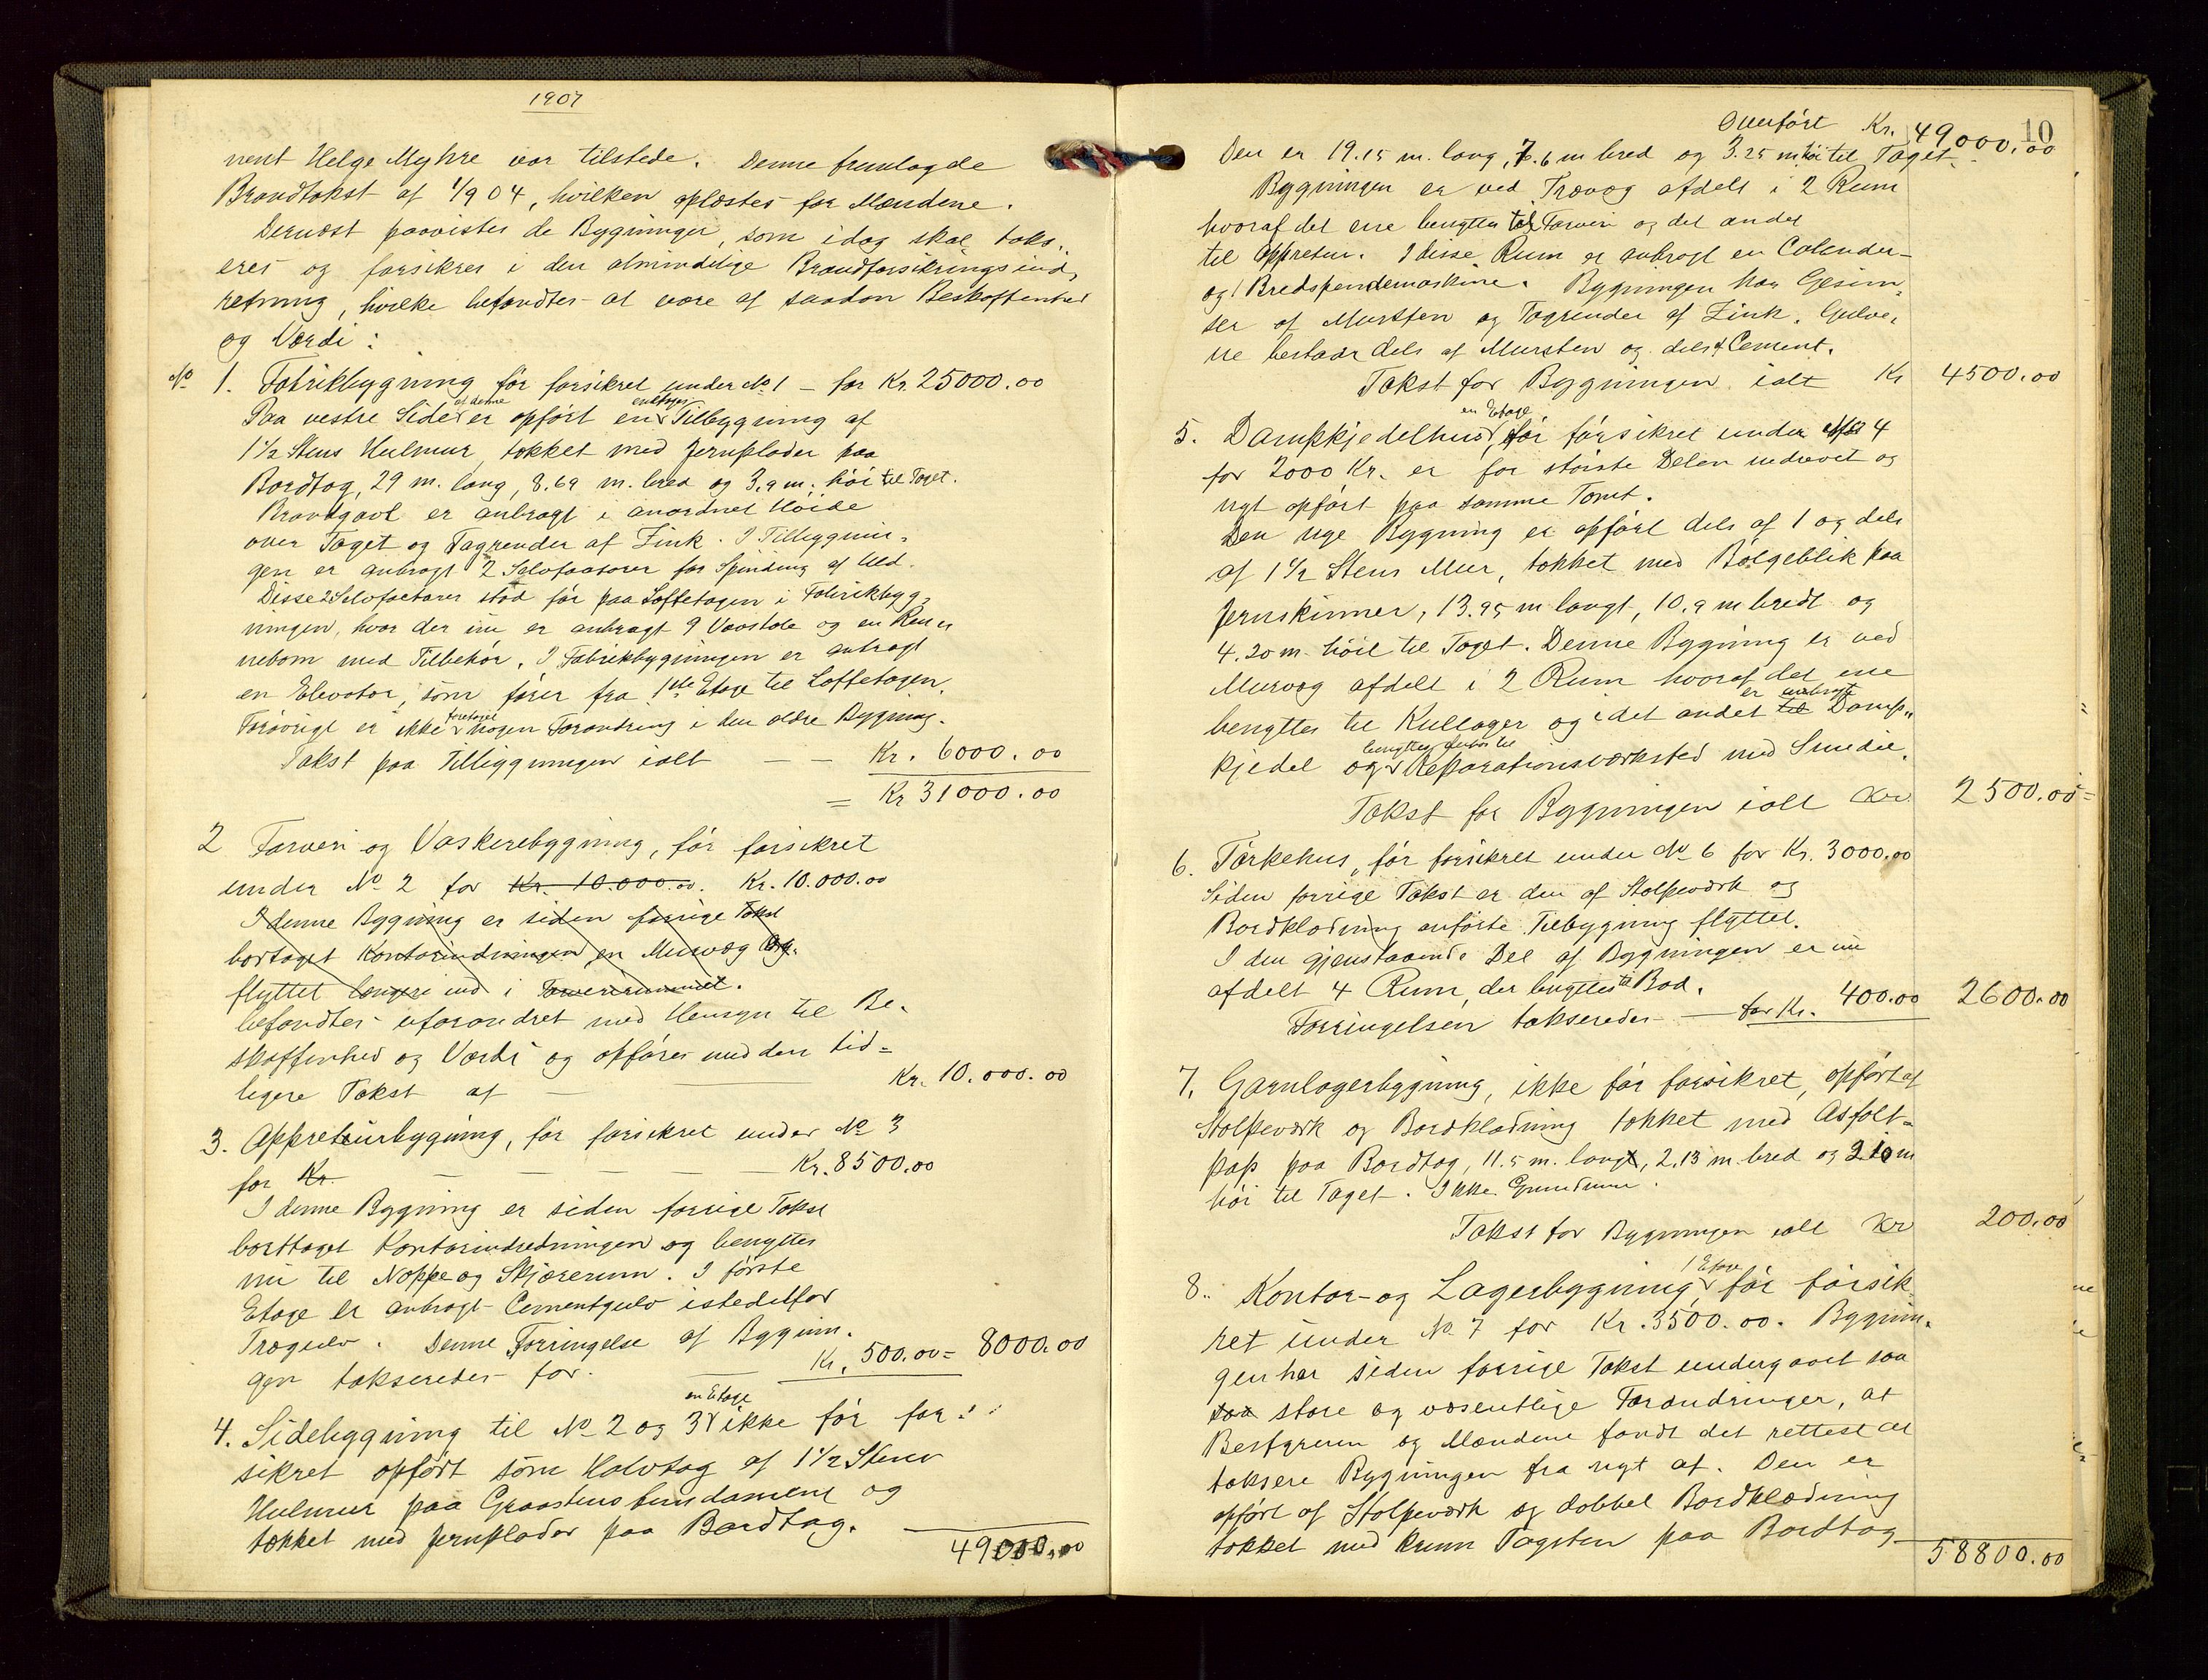 1907
nent Helge Myhre var tilstede. Denne fremlagde
Brandtakst af 1/9 04, hvilken oplæstes for Mændene.
Dernæst paavistes de Bygninger, som idag skal taks-
eres og forsikres i den almindelige Brandforsikringsind-
retning, hvilke befandtes at være af saadan Beskaffenhed
og Værdi:
No 1. Fabrikbygning før forsikret under No 1 – for Kr. 25000.00
Paa vestre Side af denne er opført en enetages Tilbygning af
1 1/2 Stens Hulmur, tækket med Jernplader paa
Bordtag, 29 m. lang, 8.69 m. bred og 3.9 m. høi til Taget.
Brandgavl er anbragt i anordnet Høide
over Taget og Tagrender af Zink. I Tilbygnin-
gen er anbragt 2 Selvfactorer for Spinding af Uld.
Disse 2 Selvfactorer stod før paa Loftetagen i Fabrikbyg-
ningen, hvor der nu er anbragt 9 Vævstole og en Ren
nebom med Tilbehør. I Fabrikbygningen er anbragt
en Elevator, som fører fra 1ste Etage til Loftetagen.
Forøvrigt er ikke foretaget nogen Forandring i den ældre Bygning.
Takst paa Tilbyggningen ialt — — Kr. 6000.00
= Kr 31000.00
2 Farveri og Vaskeribygning, før forsikret
under No 2 for Kr. 10.000.00. Kr. 10.000.00
I denne Bygning er siden forrige Takst
borttaget Kontorindredningen, en Murvæg og
flyttet længere ind i Farverirummet.
befandtes uforandret med Hensyn til Be-
skaffenhed og Værdi og opføres med den tid=
ligere Takst af — — Kr. 10.000.00
3. Appreturbygning, før forsikret under No 3
for Kr. — — — Kr. 8500.00
I denne Bygning er siden forrige Takst
borttaget Kontorindredningen og benyttes
nu til Noppe og Skjærerum. I første
Etage er anbragt Cementgulv istedetfor
Trægulv. Denne Forringelse af Bygnin-
gen takseredes for. — Kr. 500.00 = 8000.00
4. Sidebygning til No 2 og 3 en Etage ikke før for-
sikret opført som Halvtag af 1 1/2 Stens
Hulmur paa Graastensfundament og
tækket med Jernplader paa Bordtag.
49000.00
10
Overført Kr. 49000.00
Den er 19.15 m. lang, 7.6 m bred og 3.25 m. høi til Taget.
Bygningen er ved Trævæg afdelt i 2 Rum
hvoraf det ene benyttes til Farveri og det andet
til Appretur. I disse Rum er anbragt en Calender-
og 1 Bredspændemaskine. Bygningen har Gesim-
ser af Mursten og Tagrender af Zink. Gulve-
ne bestaar dels af Mursten og dels af Cement.
Takst for Bygningen ialt Kr 4500.00
5. Dampkjedelhus en Etage, før forsikret under No 4
for 2000 Kr. er for største Delen nedrevet og
nyt opført paa samme Tomt.
Den nye Bygning er opført dels af 1 og dels
af 1 1/2 Stens Mur, tækket med Bølgeblik paa
Jernskinner, 13.95 m langt, 10.9 m bredt og
4.20 m høit til Taget. Denne Bygning er ved
Murvæg afdelt i 2 Rum hvoraf det ene
benyttes til Kullager og i det andet til er anbragt Damp-
kjedel og benyttes tillige til Reparationsværksted med Smedie.
Takst for Bygningen ialt Kr. 2500.00
6. Tørkehus, før forsikret under No 6 for Kr. 3000.00
Siden forrige Takst er den af Stolpeværk og
Bordklædning anførte Tilbygning flyttet.
I den gjenstaaende Del af Bygningen er nu
afdelt 4 Rum, der benyttes til Bod.
Forringelsen takseredes — for Kr. 400.00 2600.00
7. Garnlagerbygning, ikke før forsikret, opført af
Stolpeværk og Bordklædning tækket med Asfalt-
pap paa Bordtag, 11.5 m. lang, 2.13 m. bred og 2.10 m
høi til Taget. Ikke Grundmur.
Takst for Bygningen ialt Kr 200.00
8. Kontor- og Lagerbygning 1 Etage, før forsik
ret under No. 7 for Kr. 3500.00. Bygnin-
gen har siden forrige Takst undergaaet saa
saa store og væsentlige Forandringer, at
Bestyreren og Mændene fandt det rettest at
taksere Bygningen fra nyt af. Den er
opført af Stolpeværk og dobbel Bordklædning
tækket med krum Tagsten paa Bordtag
58800.00